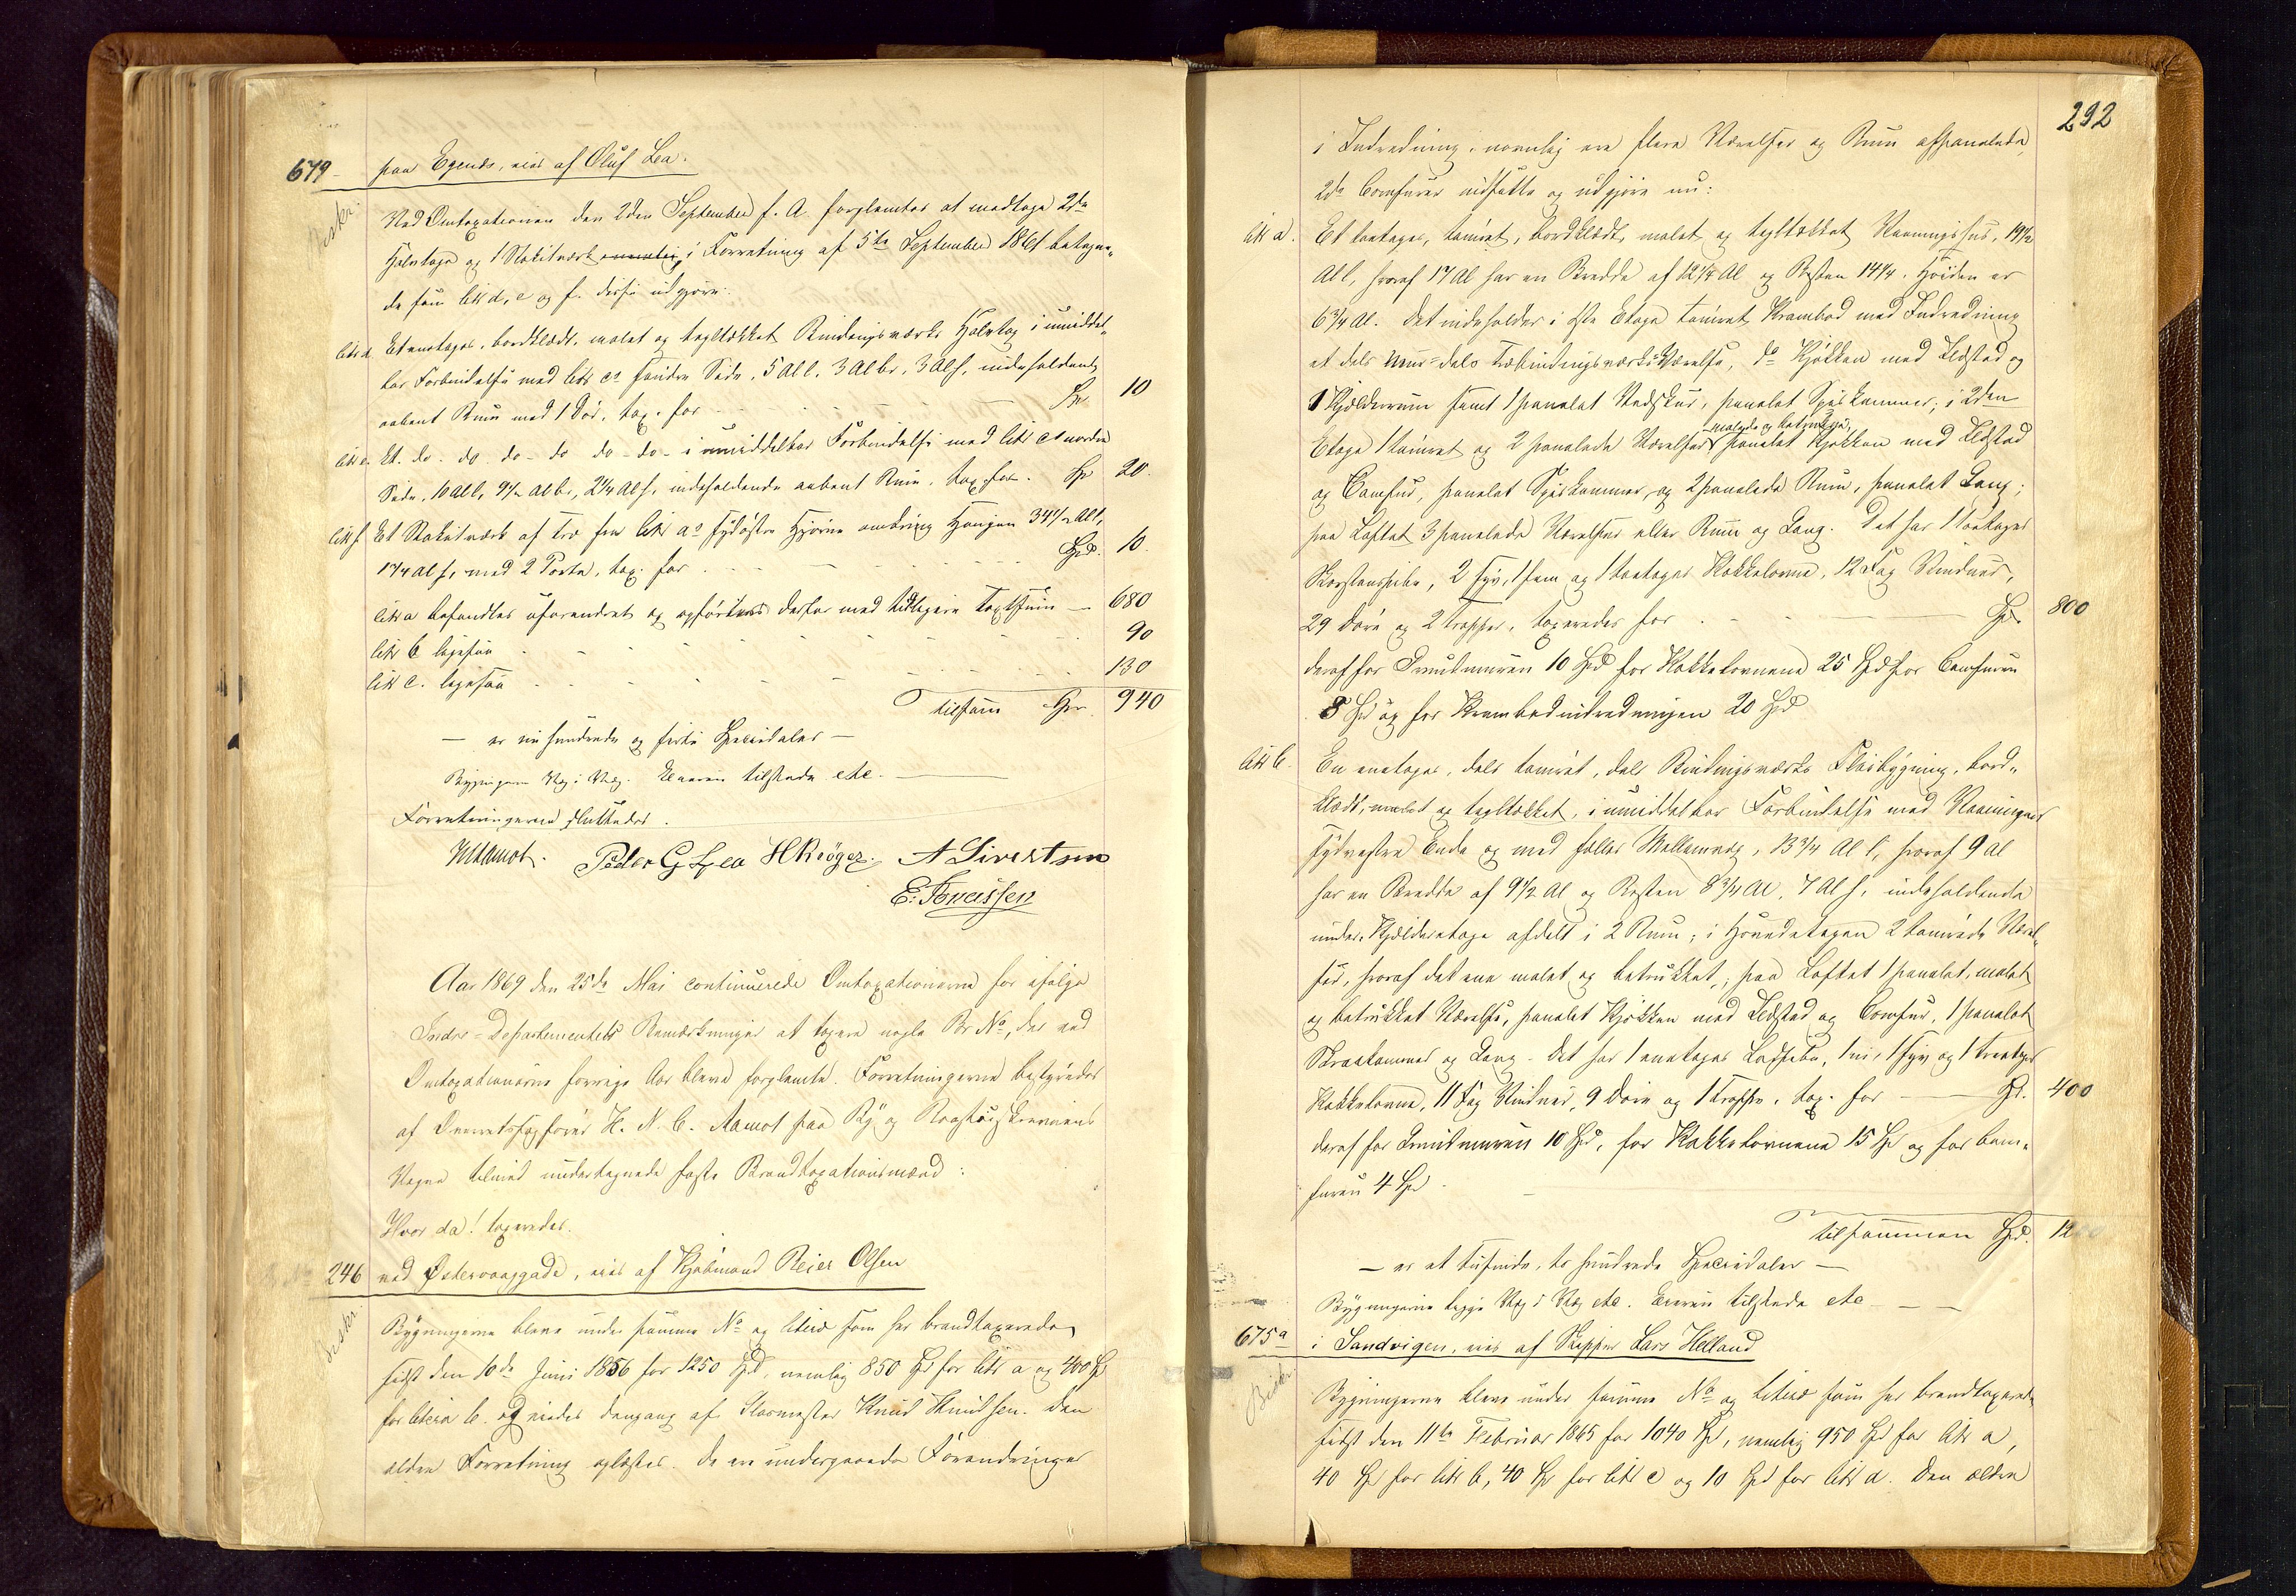 679 paa Egenes, eies af Oluf Lea.
Ved Omtaxationen den 2den September f. A. forglemtes at medtage 2de
Halvtage og 1 Stakitværk i Forretning af 5te September 1861 betegne-
de som litr d, e og f. disse udgjøre:
litr d. Et enetages, bordklædt, malet og tegltækket Bindingsværks Halvtag i umiddel-
bar Forbindelse med litr c's søndre Side, 5 Al l. 3 Al br. 3 Al h. indeholdende
aabent Rum med 1 Dør, tax. for Spd 10
litr e. Et do do do do do do i umiddelbar Forbindelse med litr c's nordre
Side, 10 Al l, 9½ Al br, 2¼ Al h. indeholdende aabent Rum, tax. for Spd 20.
litr f Et Stakitværk af Træ fra litr a's sydøstre Hjørne omkring Haugen 34½ Al l,
1¾ Al h, med 2 Porte, tax. for Spd. 10.
litr a befandtes uforandret og opførtes derfor med tidligere Taxtsum 680
litr b ligesaa 90
litr c. ligesaa 130
tilsam Spd. 940
— er ni hundrede og firti Speciedaler —
Bygningerne Væg i Væg. Eieren tilstede etc.
Forretningerne sluttedes.
Aamot. Peder G Lea H Krøger. A Sivertsen
E. Tønnessen
Aar 1869 den 25de Mai continuerede Omtaxationerne for ifølge
Indre-Departementets Bemærkninger at taxere nogle Br No, der ved
Omtaxationerne forrige Aar bleve forglemte. Forretningerne bestyredes
af Overretssagfører H. N. C. Aamot paa By og Raadstueskriverens
Vegne tilmed undertegnede faste Brandtaxationsmænd:
Hvor da! taxeredes.
246 ved Østervaaggade, eies af Kjøbmand Reier Olsen
Beskr.
Bygningerne bleve under samme No og litera som her brandtaxerede
sidst den 10de Juni 1856 for 1250 Spd, nemlig 850 Spd for litr a og 400 Spd
for litera b. og eiedes dengang af Knud Knudsen. Den
ældre Forretning oplæstes. De ere undergaaede Forandringer
292
i Indredning, nemlig ere flere Værelser og Rum afpanelede,
2de Comfurer indsatte og udgjøre nu:
litr a. Et toetages, tømret, bordklædt, malet og tegltækket Vaaningshus, 19½
Al l, hvoraf 17 Al har en Bredde af 12¼ Al og Resten 14¼. Høiden er
6¾ Al. Det indeholder i 1ste Etage tømret Krambod med Indredning
et dels muur- dels Træbindingsværks Værelse, do Kjøkken med Ildsted og
1 Kjælderrum samt 1 panelet Vedskur, panelet Spiskammer; i 2den
malede og betrukne,
Etage 1 tømret og 2 panelede Værelser, panelet Kjøkken med Ildsted
og Comfur, panelet Spiskammer, og 2 panelede Rum, panelet Gang;
paa Loftet 3 panelede Værelser eller Rum og Gang. Det har 1 toetages
Skorstenspibe, 2 syv, 1 fem og 1 toetages Kakkelovne, 12 Fag Vinduer,
29 Døre og 2 Trapper, taxeredes for Spd. 800
deraf for Grundmuren 10 Spd for Kakkelovnene 25 Spd for Comfuren
8 Spd og for Krambodindredningen 20 Spd
litr b. En enetages, dels tømret, dels Bindingsværks Fløibygning, bord-
klædt, malet og tegltækket, i umiddelbar Forbindelse med Vaaningens
sydvestre Ende og med fælles Mellemvæg, 13¾ Al l, hvoraf 9 Al
har en Bredde af 9½ Al og Resten 8¾ Al, 7 Al h. indeholdende
under Kjælderetage afdelt i 2 Rum; i Hovedetagen 2 tømrede Værel-
ser, hvoraf det ene malet og betrukket; paa Loftet 1 panelet, malet
og betrukket Værelse, panelet Kjøkken med Ildsted og Comfur, 1 panelet
og Gang. Det har 1 enetages Ladpibe, 1 ni, 1 syv og 1 treetages
Kakkelovne, 11 Fag Vinduer, 9 Døre og 1 Trappe, tax. for Spd. 400
deraf for Grundmuren 10 Spd, for Kakkelovnene 15 Spd og for Com-
furen 4 Spd.
tilsammen Spd. 1200
— er et tusinde, to hundrede Speciedaler —
Bygningerne begge Væg i Væg etc. Eieren tilstede etc
675a i Sandvigen, eies af Skipper Lars Helland
Beskr.
Bygningerne bleve under samme No og litera som her brandtaxerede
sidst den 11te Februar 1865 for 1040 Spd, nemlig 950 Spd for litr a,
40 Spd for litr b, 40 Spd for litr c og 10 Spd for litr d. Den ældre